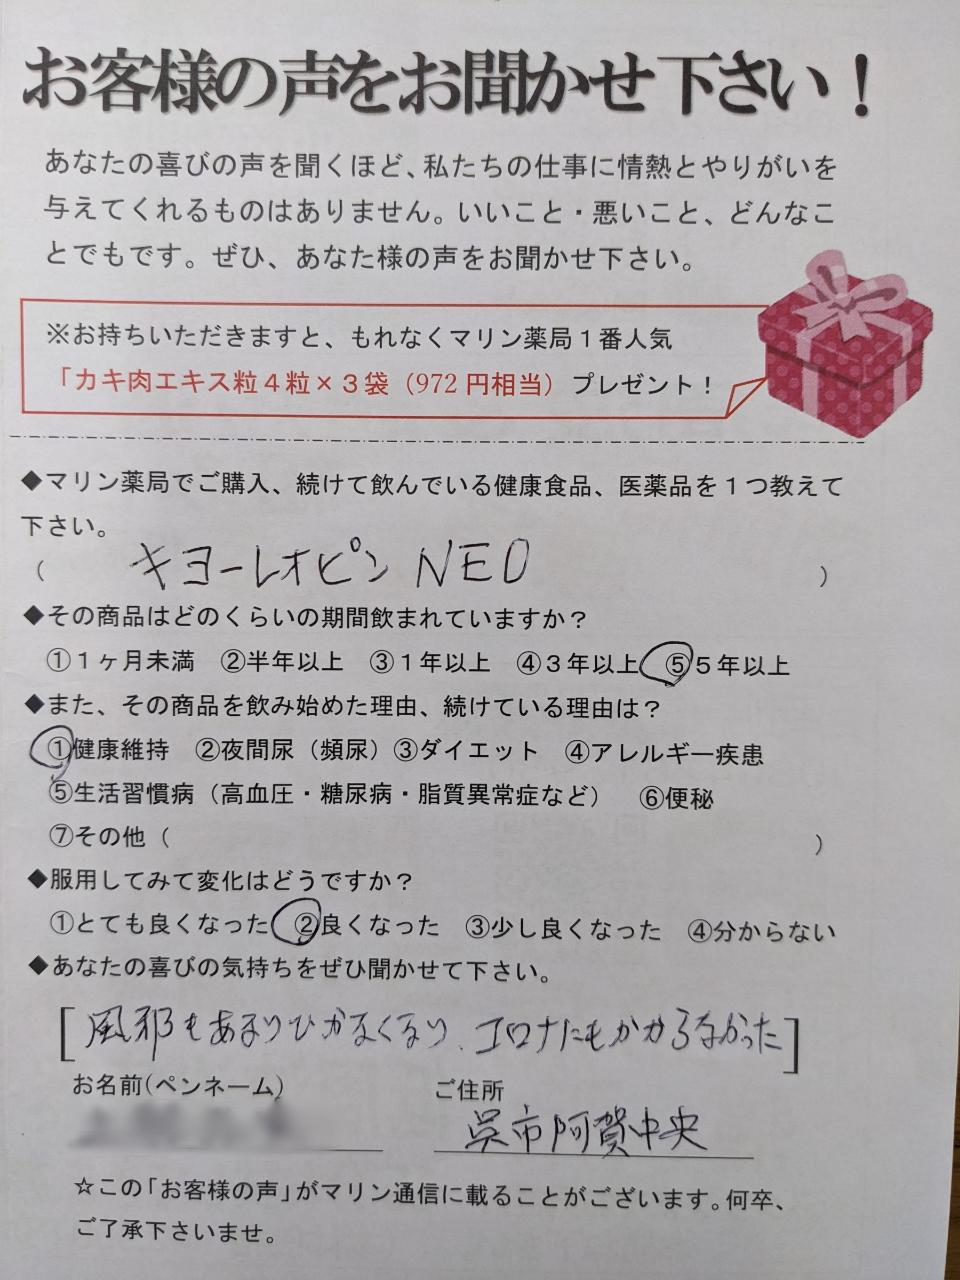 お客様の声をお聞かせ下さい！
あなたの喜びの声を聞くほど、私たちの仕事に情熱とやりがいを
与えてくれるものはありません。いいこと・悪いこと、どんなこ
とでもです。ぜひ、あなた様の声をお聞かせ下さい。
※お持ちいただきますと、もれなくマリン薬局１番人気
「カキ肉エキス粒４粒×３袋（972 円相当）プレゼント！
◆マリン薬局でご購入、続けて飲んでいる健康食品、医薬品を１つ教えて
下さい。
（ キヨーレオピン NEO ）
◆その商品はどのくらいの期間飲まれていますか？
①１ヶ月未満　②半年以上　③１年以上　④３年以上　⑤５年以上
◆また、その商品を飲み始めた理由、続けている理由は？
①健康維持　②夜間尿（頻尿）③ダイエット　④アレルギー疾患
⑤生活習慣病（高血圧・糖尿病・脂質異常症など）　⑥便秘
⑦その他（　）
◆服用してみて変化はどうですか？
①とても良くなった　②良くなった　③少し良くなった　④分からない
◆あなたの喜びの気持ちをぜひ聞かせて下さい。
[風邪もあまりひかなくなり、コロナにもかからなかった]
お名前(ペンネーム)　ご住所
呉市阿賀中央
☆この「お客様の声」がマリン通信に載ることがございます。何卒、
ご了承下さいませ。